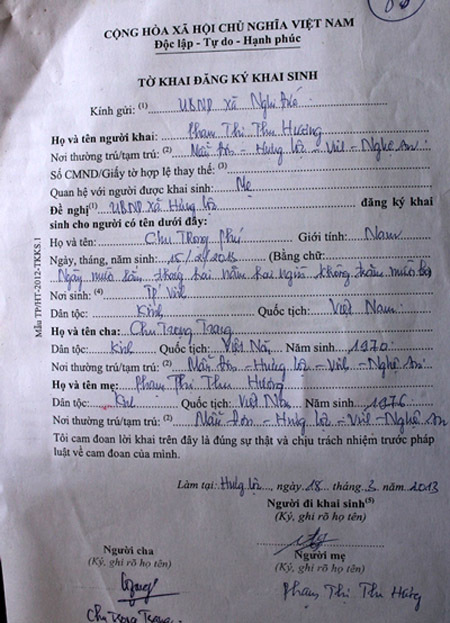 CỘNG HÒA XÃ HỘI CHỦ NGHĨA VIỆT NAM
Độc lập - Tự do - Hạnh phúc
TỜ KHAI ĐĂNG KÝ KHAI SINH
Kính gửi: (1) UBND xã Nghi
Họ và tên người khai: Phạm Thị Thu Hương
Nơi thường trú/tạm trú: (2) Mẫu Đơn - Hưng Lộc - Vinh - Nghệ An
Số CMND/Giấy tờ hợp lệ thay thế: (3)
Quan hệ với người được khai sinh: Mẹ
Đề nghị(1) UBND xã Hưng Lộc đăng ký khai
sinh cho người có tên dưới đây:
Họ và tên: Chu Trọng Phú Giới tính: Nam
Ngày, tháng, năm sinh: 15/2/2013 (Bằng chữ:
Ngày mười lăm tháng hai năm hai nghìn không trăm mười ba
Nơi sinh: (4) TP Vinh
Dân tộc: Kinh Quốc tịch: Việt Nam
Họ và tên cha: Chu Trọng Trang
Dân tộc: Kinh Quốc tịch: Việt Na Năm sinh 1970
Nơi thường trú/tạm trú: (2) Mẫu Đơn - Hưng Lộc - Vinh - Nghệ An
Họ và tên mẹ: Phạm Thị Thu Hương
Dân tộc: Kinh Quốc tịch: Việt Nam Năm sinh 1976
Nơi thường trú/tạm trú: (2) Mẫu Đơn - Hưng Lộc - Vinh - Nghệ An
Tôi cam đoan lời khai trên đây là đúng sự thật và chịu trách nhiệm trước pháp
luật về cam đoan của mình.
Làm tại: Hưng Lộc, ngày 18 tháng 3 năm 2013
Người đi khai sinh(5)
(Ký, ghi rõ họ tên)
Người cha
(Ký, ghi rõ họ tên)
Người mẹ
(Ký, ghi rõ họ tên)
Chu Trọng Trang
Phạm Thị Thu Hương
Mẫu TP/HT-2012-TKKS.1